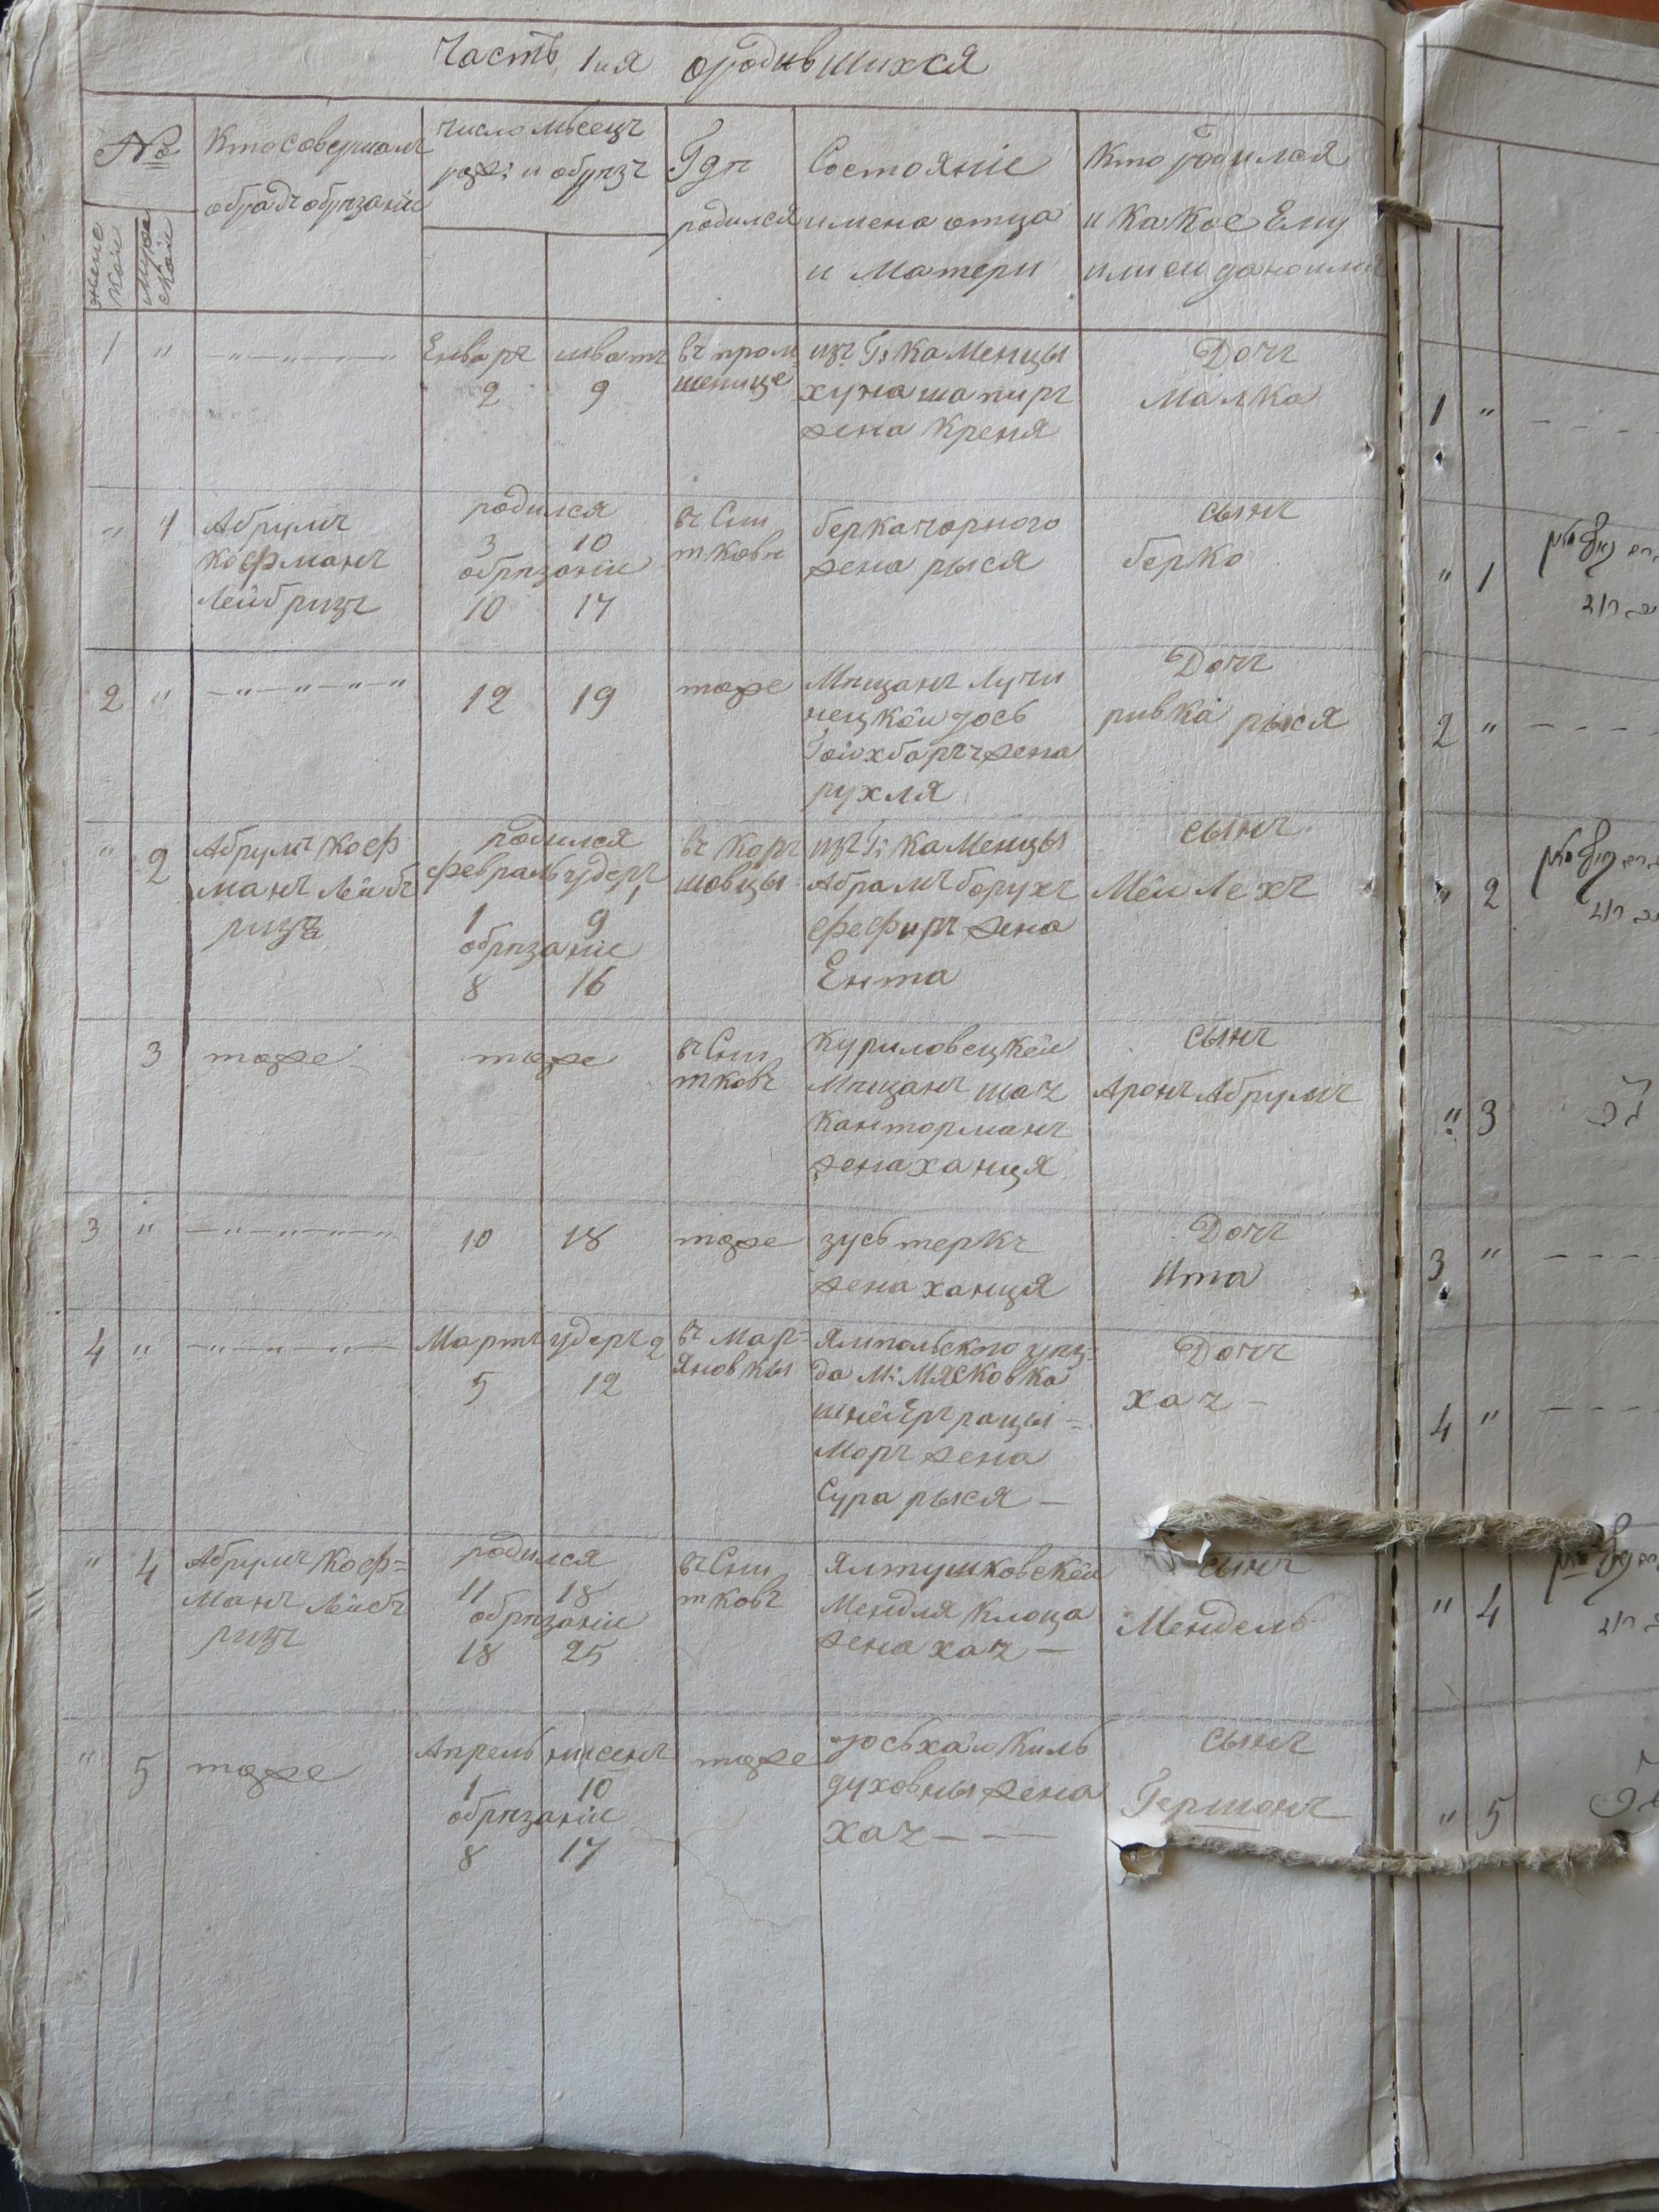 Часть 1ия ородившихся
№
Ктосовершалъ
обрадъобрѣзаніе
число мѣсецъ
рож: и обрѣзъ
Гдѣ
родился
Состояніе
имена отца
и Матери
Кто родился
и Какое Ему
или еи дано имя
женскои
Мужескои
1 " —"—"—"—
Енваръ шватъ
2 9
въ пром
шенице
изъ Г: Каменцы
хуна шапиръ
жена Креня
Дочъ
Малка
" 1
Абрумъ
Кофманъ
Леибризъ
родился
3 10
обрѣзаніе
10 17
въ Сни
тковѣ
берка чорного
жена рыся
сынъ
берко
2 " —"—"—"—"
12 19
тоже
Мѣщанъ Лучи
нецкои иось
жена
рухля
Дочъ
ривка рыся
" 2
Абрумъ Коф
манъ Леибъ
ризъ
родился
Февраль удеръ 1
1 9
обрѣзаніе
8 16
въ Коръ
шовцы
изъ Г: Каменцы
Абрамъ борухъ
фефиръ жена
Ента
сынъ
Меилехъ
3 тоже
тоже
въ Сни
тковъ
Куриловецкеи
Мѣщанъ шаъ
Канторманъ
жена ханця
сынъ
Аронъ Абрумъ
3 " —"—"—"—"
10 18
тоже
зусь теркъ
жена ханця
Дочъ
Ита
4 " —"—"—"—
Мартъ удеръ 2
5 12
въ Мар=
яновкы
Ямпольского уѣз=
да М: Мясковка
шнеиеръ рацы=
моръ жена
Сура рыся —
Дочъ
хаъ —
" 4
Абрумъ Коф=
манъ Леибъ
ризъ
родился
11 18
обрѣзаніе
18 25
въ Сни
тковъ
Ялтушковскеи
Мендля Клоца
жена хаъ —
сынъ
Мендель
" 5 тоже
Апрель нисенъ
1 10
обрѣзаніе
8 17
тоже
иось хаикиль
духовны жена
хаъ — — —
сынъ
Гершонъ
1 "
" 1
2 "
" 2
" 3
3 "
4 "
" 4
" 5